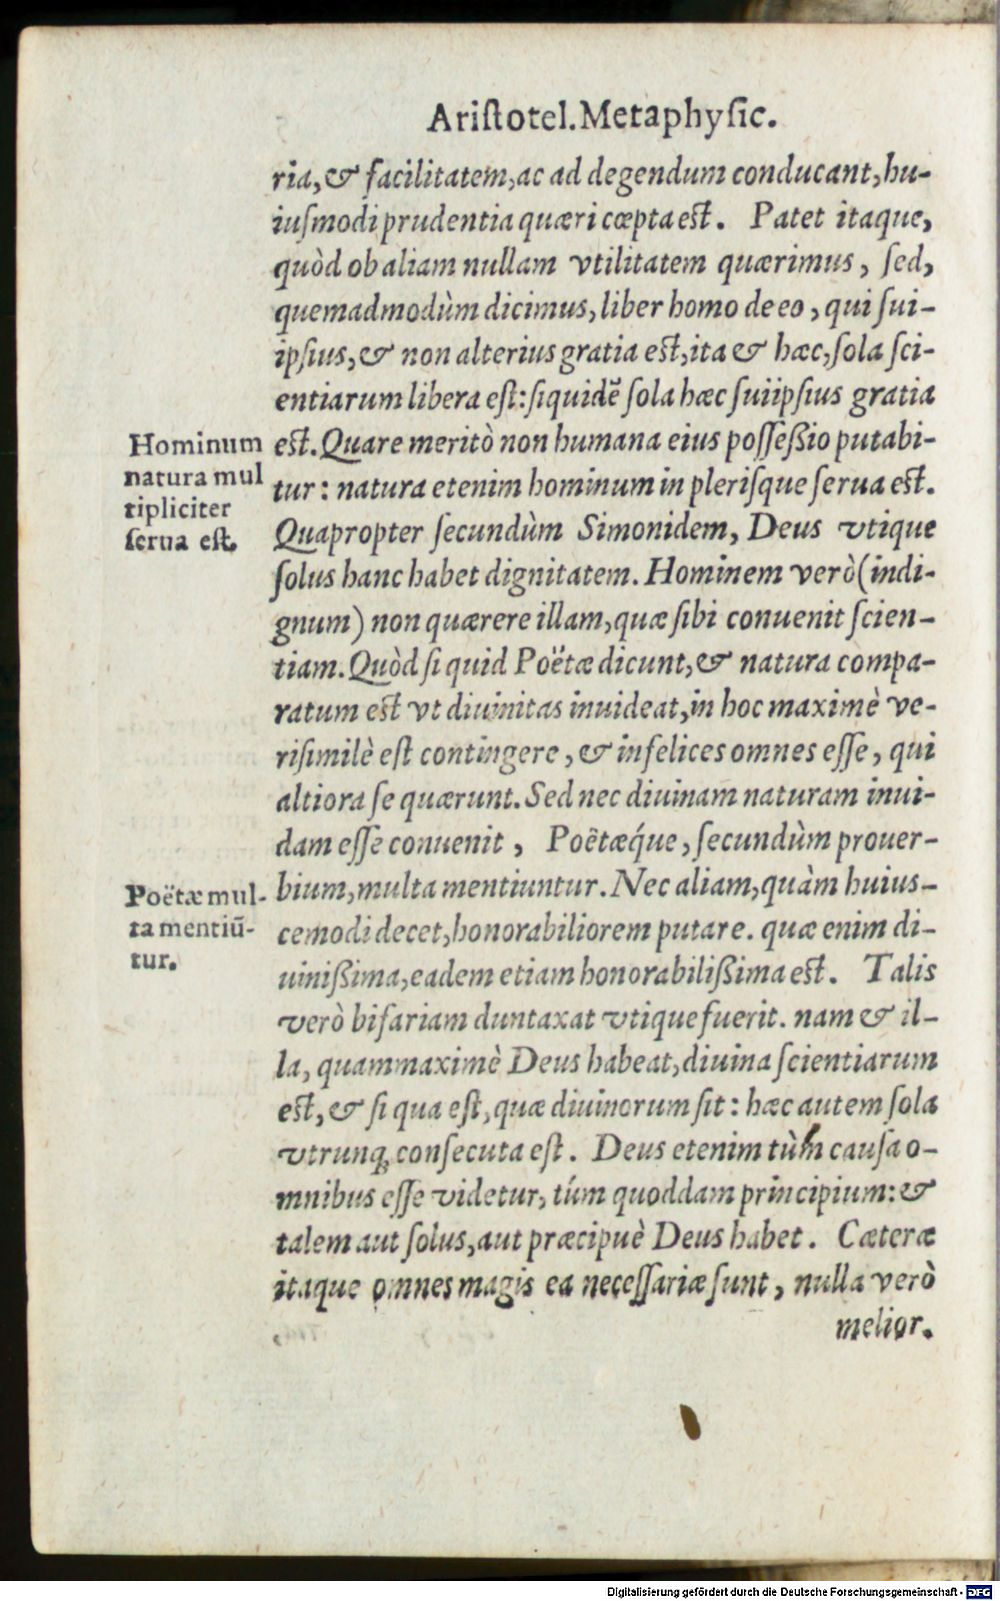 Ariſtotel. Metaphyſic.
ria, & facilitatem, ac ad degendum conducant, hu-
iuſmodi prudentia quæri cœpta eſt. Patet itaque,
quòd ob aliam nullam vtilitatem quærimus, ſed,
quemadmodùm dicimus, liber homo de eo, qui ſui-
ipſius, & non alterius gratia eſt, ita & hæc, ſola ſci-
entiarum libera eſt: ſiquidē ſola hæc ſuiipſius gratia
est. Quare meritò non humana eius poſſeßio putabi-
tur: natura etenim hominum in pleriſque ſerua eſt.
Quapropter ſecundùm Simonidem, Deus vtique
ſolus hanc habet dignitatem. Hominem verò (indi-
gnum) non quærere illam, quæ ſibi conuenit ſcien-
tiam. Quòd ſi quid Poëtæ dicunt, & natura compa-
ratum eſt vt diuinitas inuideat, in hoc maximè ve-
riſimilè eſt contingere, & infelices omnes eſſe, qui
altiora ſe quærunt. Sed nec diuinam naturam inui-
dam eſſe conuenit, Poëtæq́ue, ſecundùm prouer-
bium, multa mentiuntur. Nec aliam, quàm huius-
cemodi decet, honorabiliorem putare. quæ enim di-
uinißima, eadem etiam honorabilißima eſt. Talis
verò bifariam duntaxat vtique fuerit. nam & il-
la, quammaximè Deus habeat, diuina ſcientiarum
eſt, & ſi qua eſt, quæ diuinorum ſit: hæc autem ſola
vtrunq; conſecuta eſt. Deus etenim tùm cauſa o-
mnibus eſſe videtur, túm quoddam principium: &
talem aut ſolus, aut præcipuè Deus habet. Cæteræ
itaque omnes magis ea neceſſariæ ſunt, nulla verò
melior.
Hominum
natura mul
tipliciter
ſerua eſt.
Poëtæ mul-
ta mentiū-
tur.
Digitalisierung gefördert durch die Deutsche Forschungsgemeinschaft - DFG